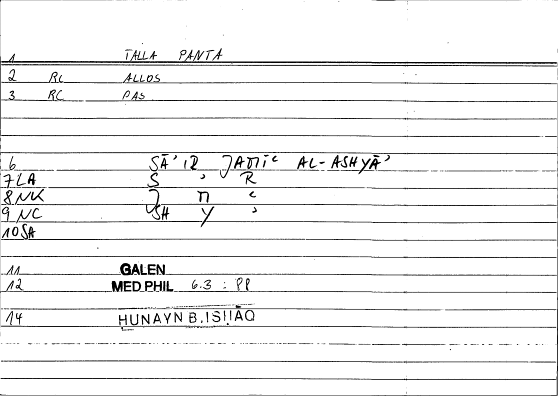 1 TALLA PANTA
2 RC ALLOS
3 RC PAS
6 SĀ'IR JAMĪʿ AL-ASHYĀ'
7 LA S ' R
8 NK J M ʿ
9 NC SH Y '
10 SA
11 GALEN
12 MED PHIL 6.3 : PP
14 HUNAYN B. ISHĀQ